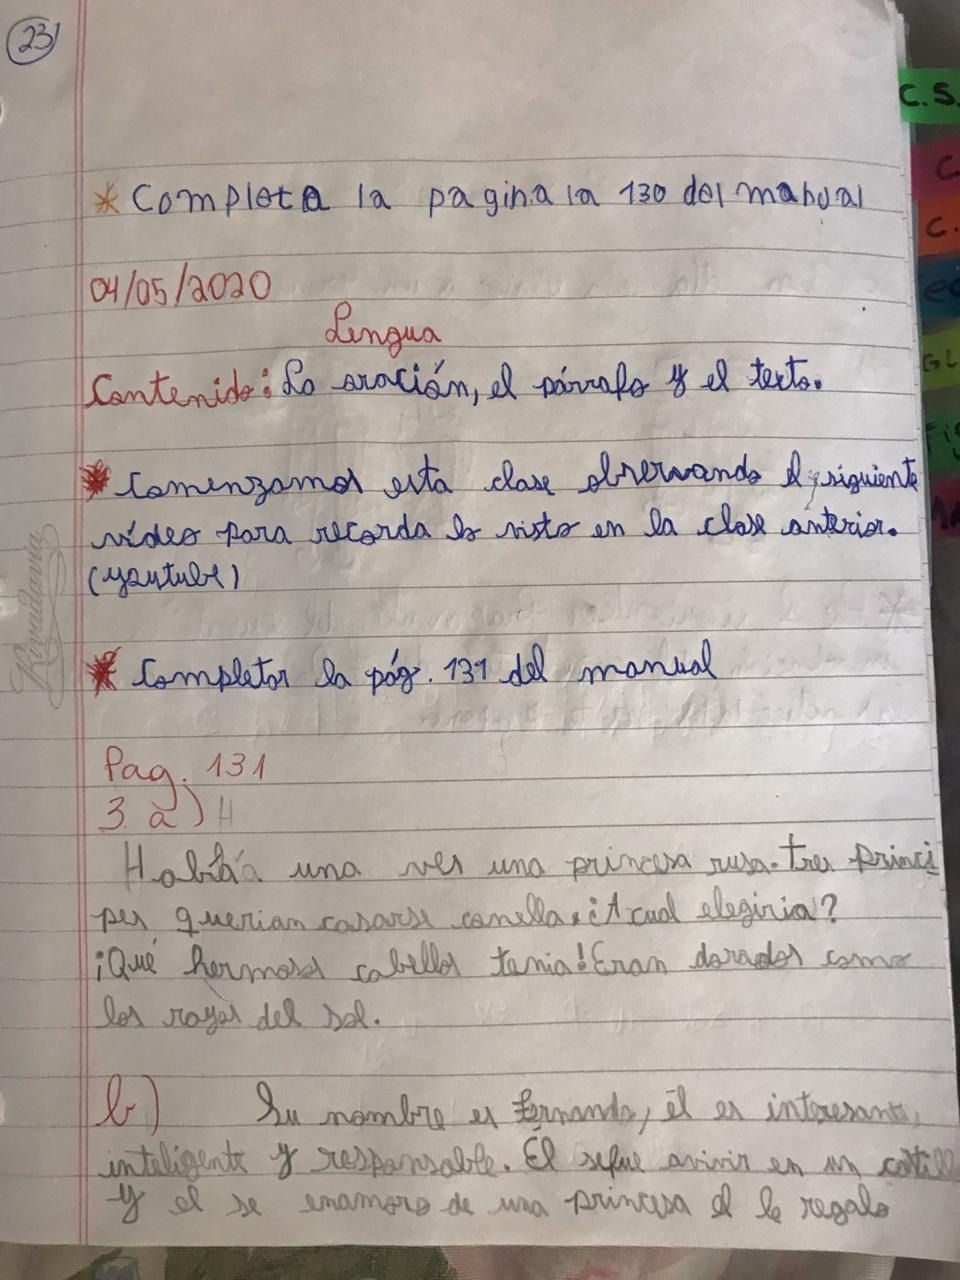 23
* Completa la pagina la 130 del manual
04/05/2020
Lengua
Contenido: La oración, el párrafo y el texto.
* Comenzamos esta clase obserevando el siguiente
vídeo para recorda lo visto en la clase anterior.
(youtube)
* Completar la pág. 131 del manual
Pag. 131
3. a) H
Habiá una ves una princesa rusa. tres princi
pes querian casarse conella. ¿A cual elegiria?
¡Qué hermosos cabellos tenia! Eran dorados como
los rayos del sol.
b) Su nombre es fernando, él es interesante,
inteligente y responsable. Él sefue avivir en un castill
y el se enamoro de una princesa el le regalo
Rivadavia
C.S.
C.
C.
GL